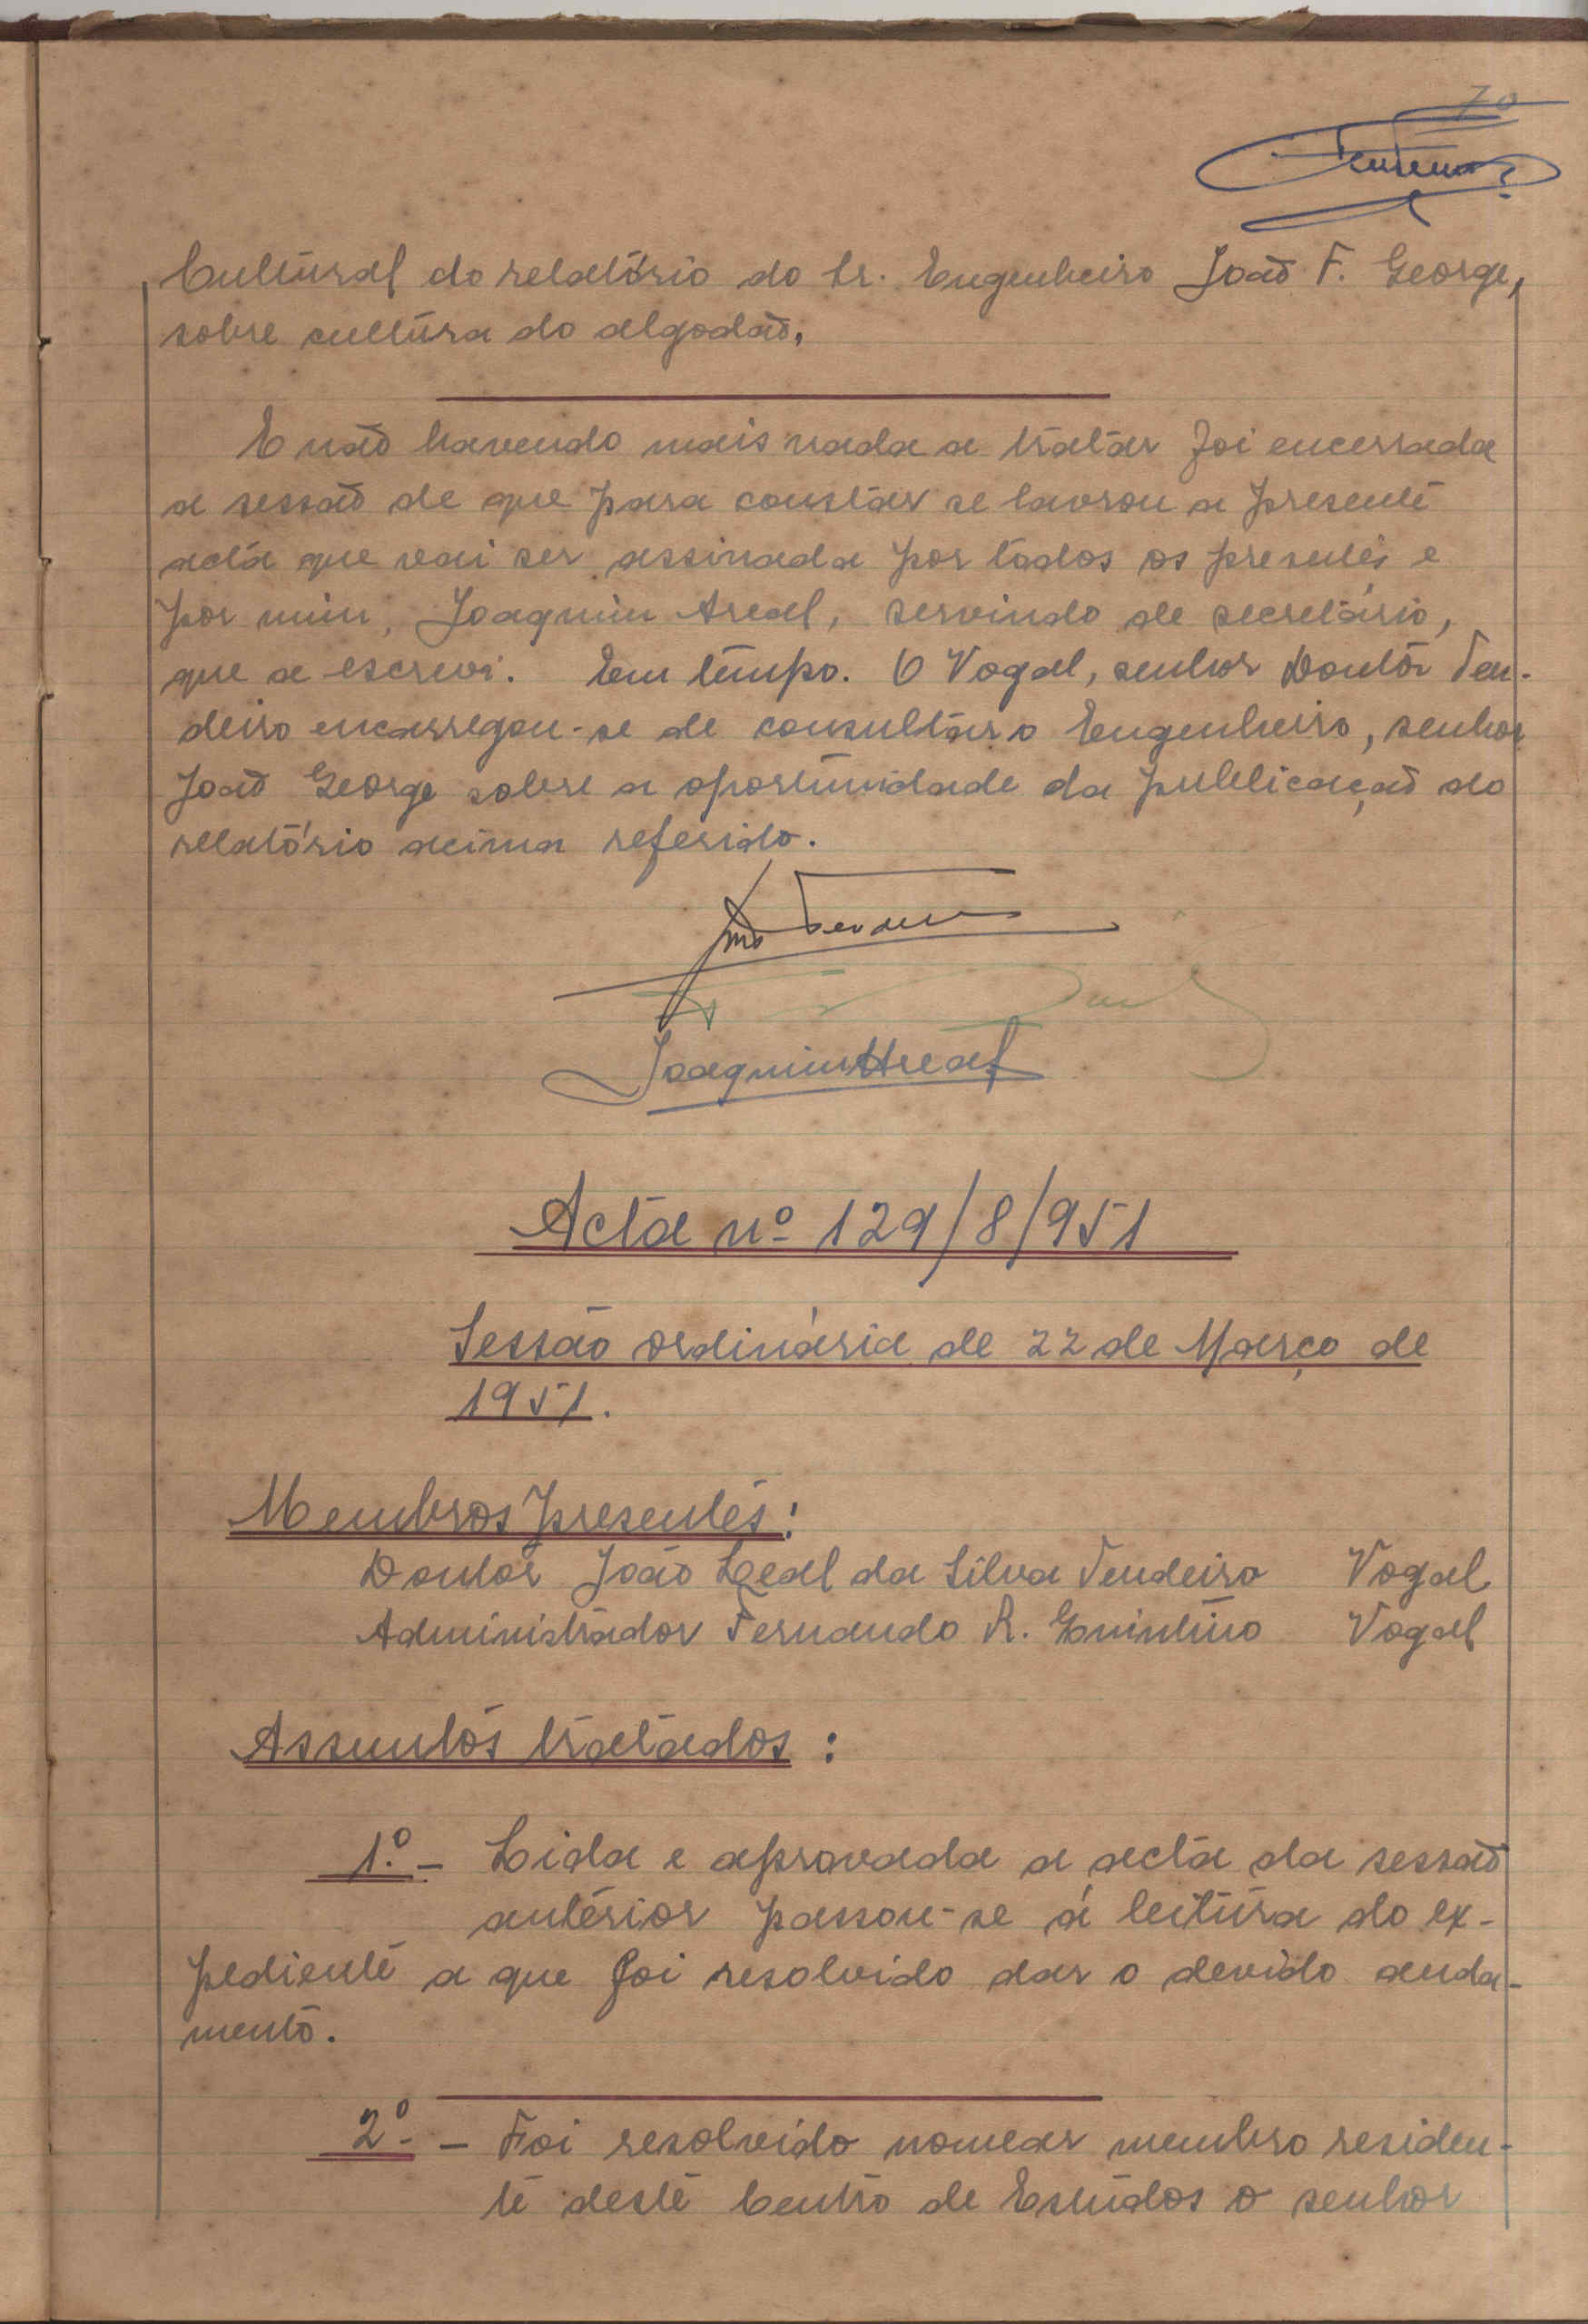 70
Tendeiro
Cultural do relatório do Sr. Engenheiro João F. George,
sobre cultura do algodão.
E não havendo mais nada a tratar foi encerrada
a sessão de que para constar se lavrou a presente
acta que vai ser assinada por todos os presentes e
por mim, Joaquim Areal, servindo de secretário,
que a escrevi. Em tempo. O Vogal, senhor Doutor Ten-
deiro encarregou-se de consultar o Engenheiro, senhor
João George sobre a oportunidade da publicação do
relatório acima referido.
João Tendeiro
Joaquim Areal
Acta nº 129/8/951
Sessão ordinária de 22 de Março de
1951.
Membros presentes:
Doutor João Leal da Silva Tendeiro Vogal
Administrador Fernando R. Quintino Vogal
Assuntos tratados:
1.º - Lida e aprovada a acta da sessão
anterior passou-se á leitura do ex-
pediente a que foi resolvido dar o devido anda-
mento.
2º - Foi resolvido nomear membro residen-
te deste Centro de Estudos o senhor